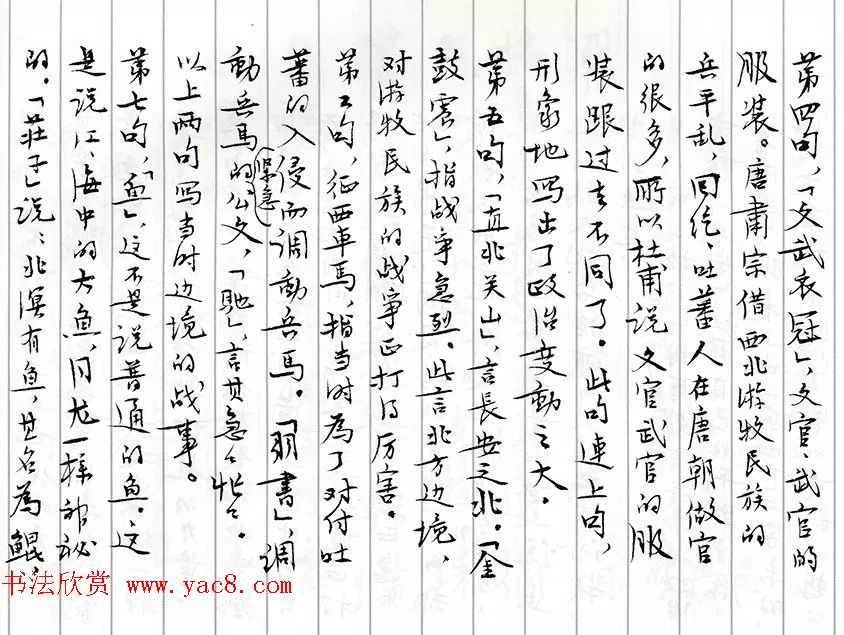 第四句，「文武衣冠」，文官、武官的
服装。唐肃宗借西北游牧民族的
兵平乱，回纥、吐蕃人在唐朝做官
的很多，所以杜甫说文官武官的服
装跟过去不同了。此句連上句，
形象地写出了政治变動之大。
第五句，「直北关山」，言長安之北。「金
鼓震」，指战争急烈。此言北方边境，
对游牧民族的战争正打得厉害。
第六句，征西車馬，指当时為了对付吐
蕃的入侵而调動兵馬。「羽書」，调
動兵馬的（緊急）公文，「馳」，言其急急忙忙。
以上两句写当时边境的战事。
第七句，「鱼」，这不是说普通的鱼。这
是说江、海中的大鱼，同龙一樣神秘
的。「莊子」说：北溟有鱼，其名為鯤，
书法欣赏 www.yac8.com